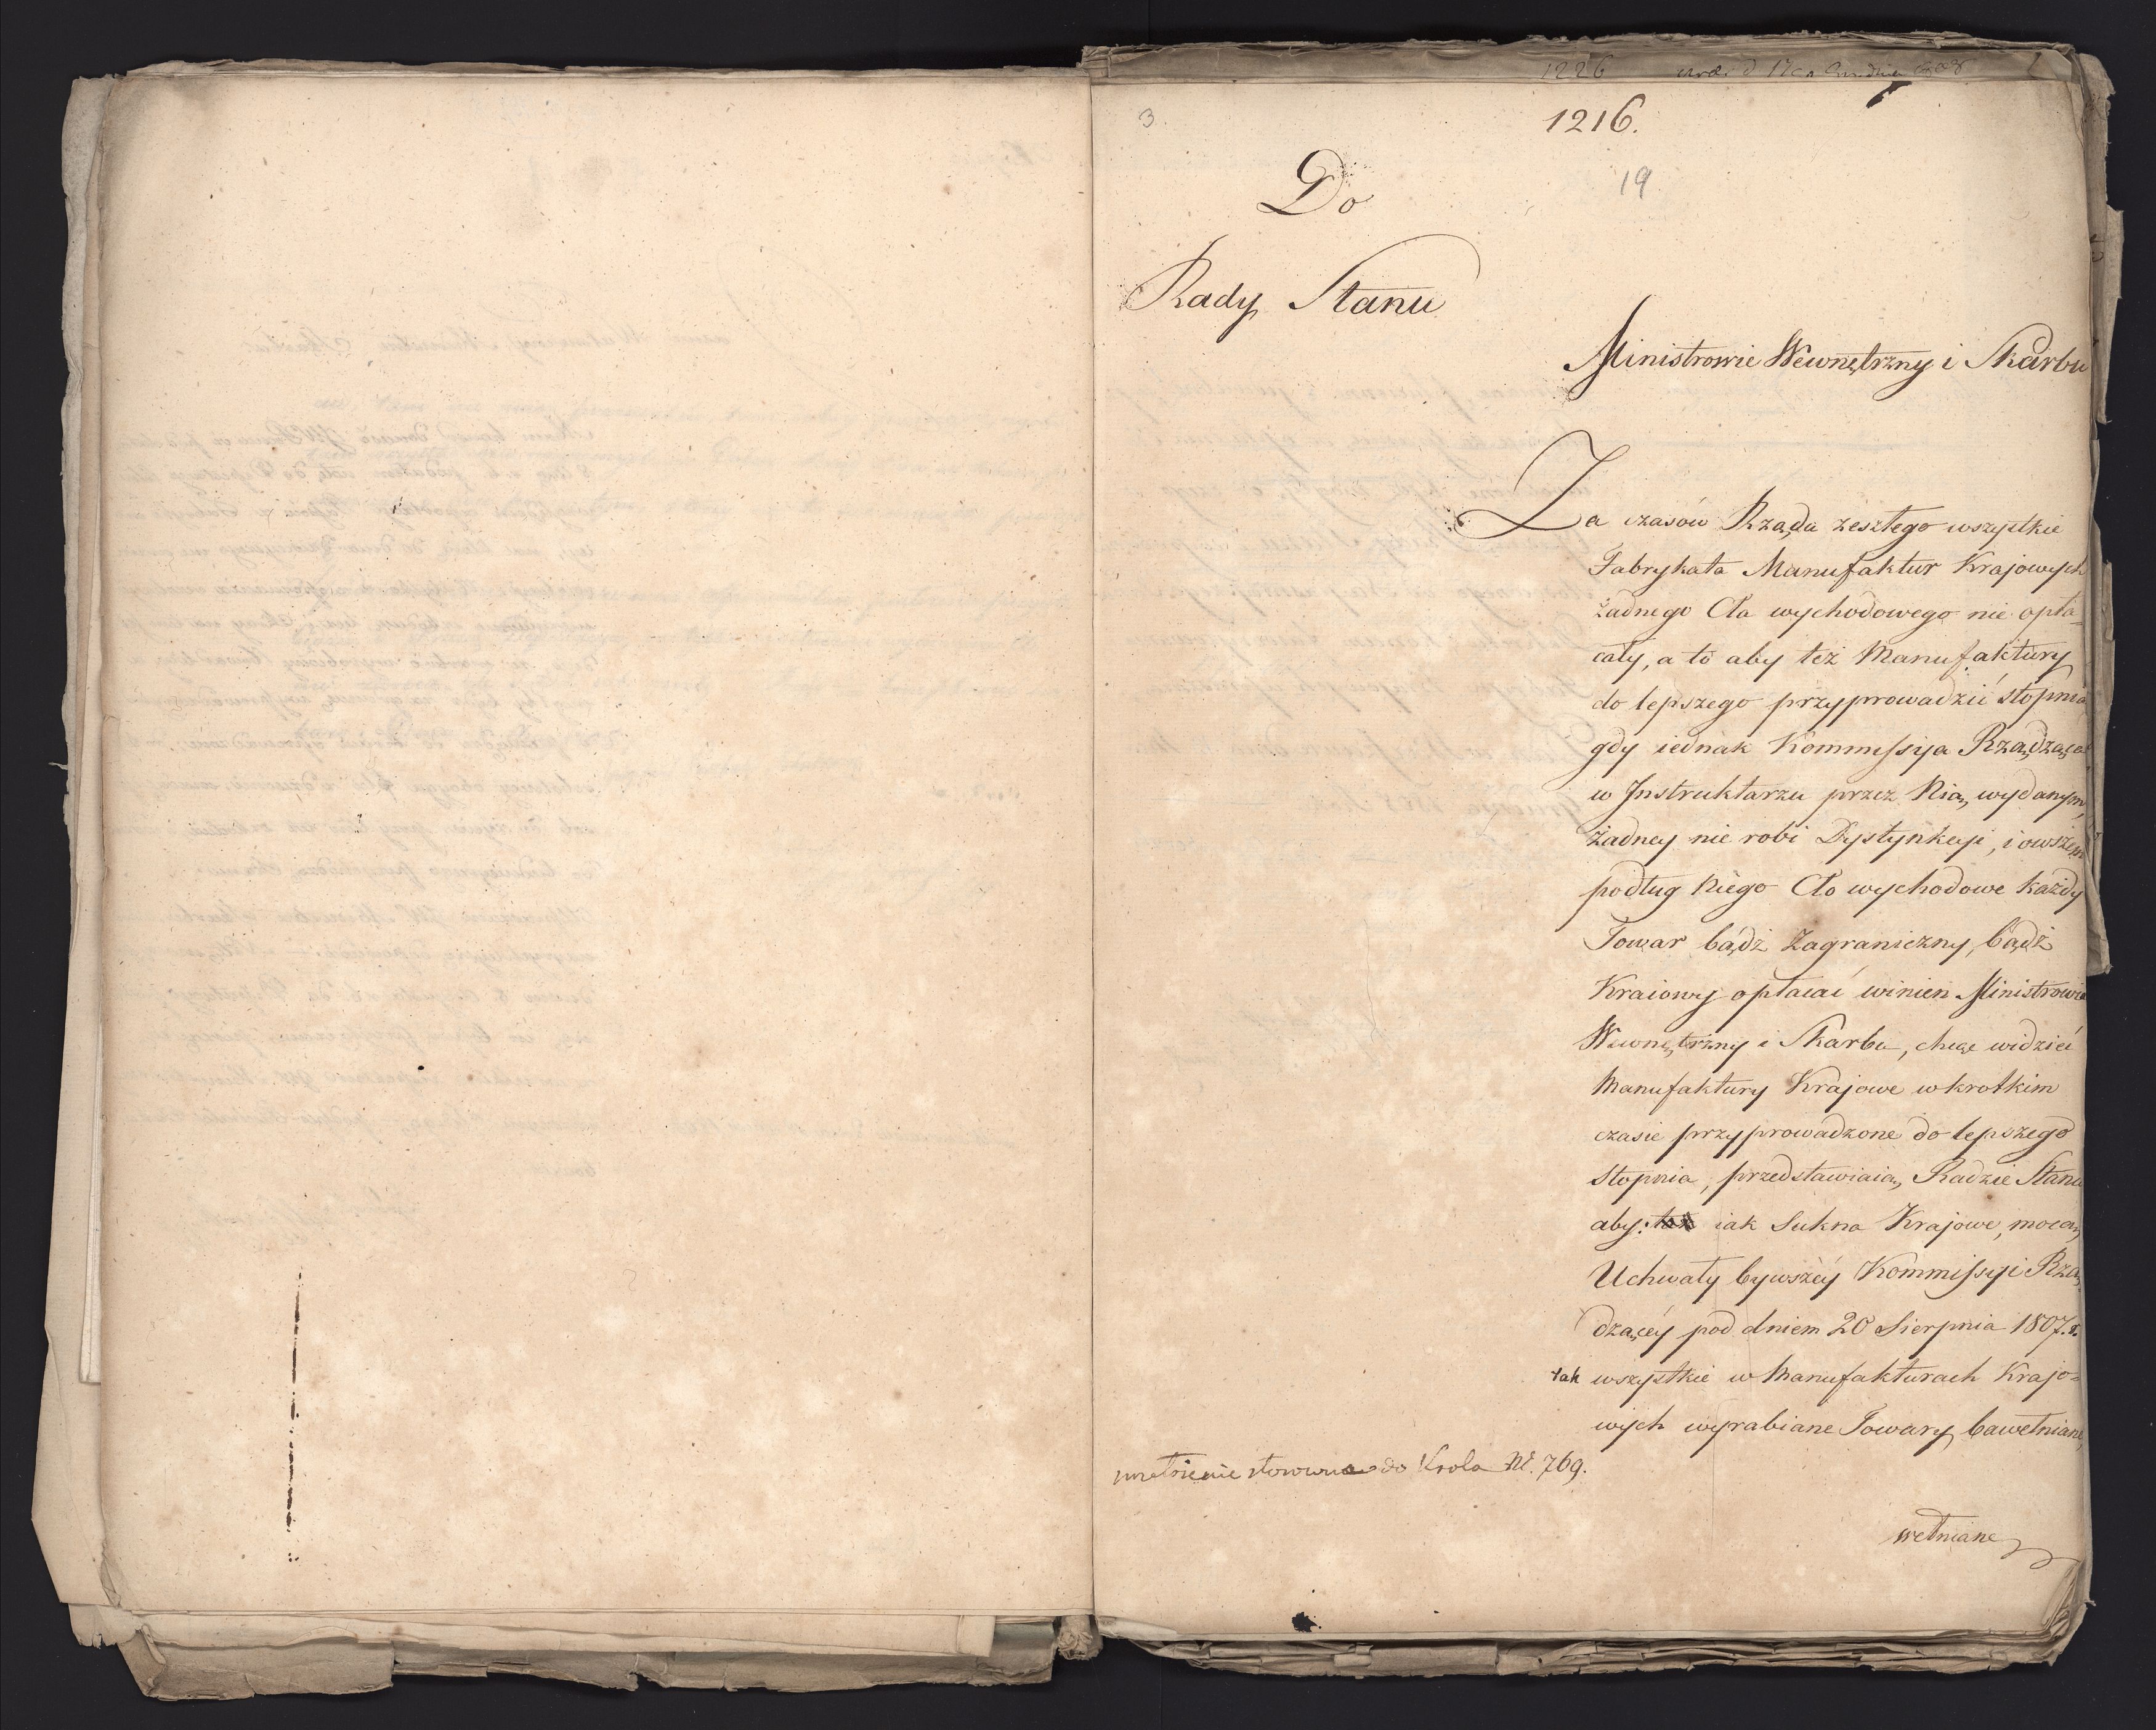 1226
3.
1216.
19
Do
Rady Stanu
Ministrowie Wewnętrzny i Skarbu
Za czasów Rządu zeszłego wszystkie
Fabrykata Manufaktur Krajowych
żadnego Cła wychodowego nie opła=
cały, a to aby też Manufaktury
do lepszego przyprowadzić stopnia
gdy iednak Kommissyja Rządząca
w Instruktarzu przez Nią wydanym,
żadney nie robi Dystynkcyi, i owszem
podług Niego Cło wychodowe każdy
Towar bądź Zagraniczny, bądź
Kraiowy opłacać winien Ministrowie
Wewnętrzny i Skarbu, chcąc widzieć
Manufaktury Krajowe w krotkim
czasie przyprowadzone do lepszego
stopnia, przedstawiaią Radzie Stanu
aby: iak Sukna Krajowe, mocą
Uchwały bywszéy Kommissyi Rzą
dzącéy pod dniem 20 Sierpnia 1807. r.
tak wszystkie w Manufakturach Krajo=
wych wyrabiane Towary bawełniane,
do Krola Nr. 769.
wełniane